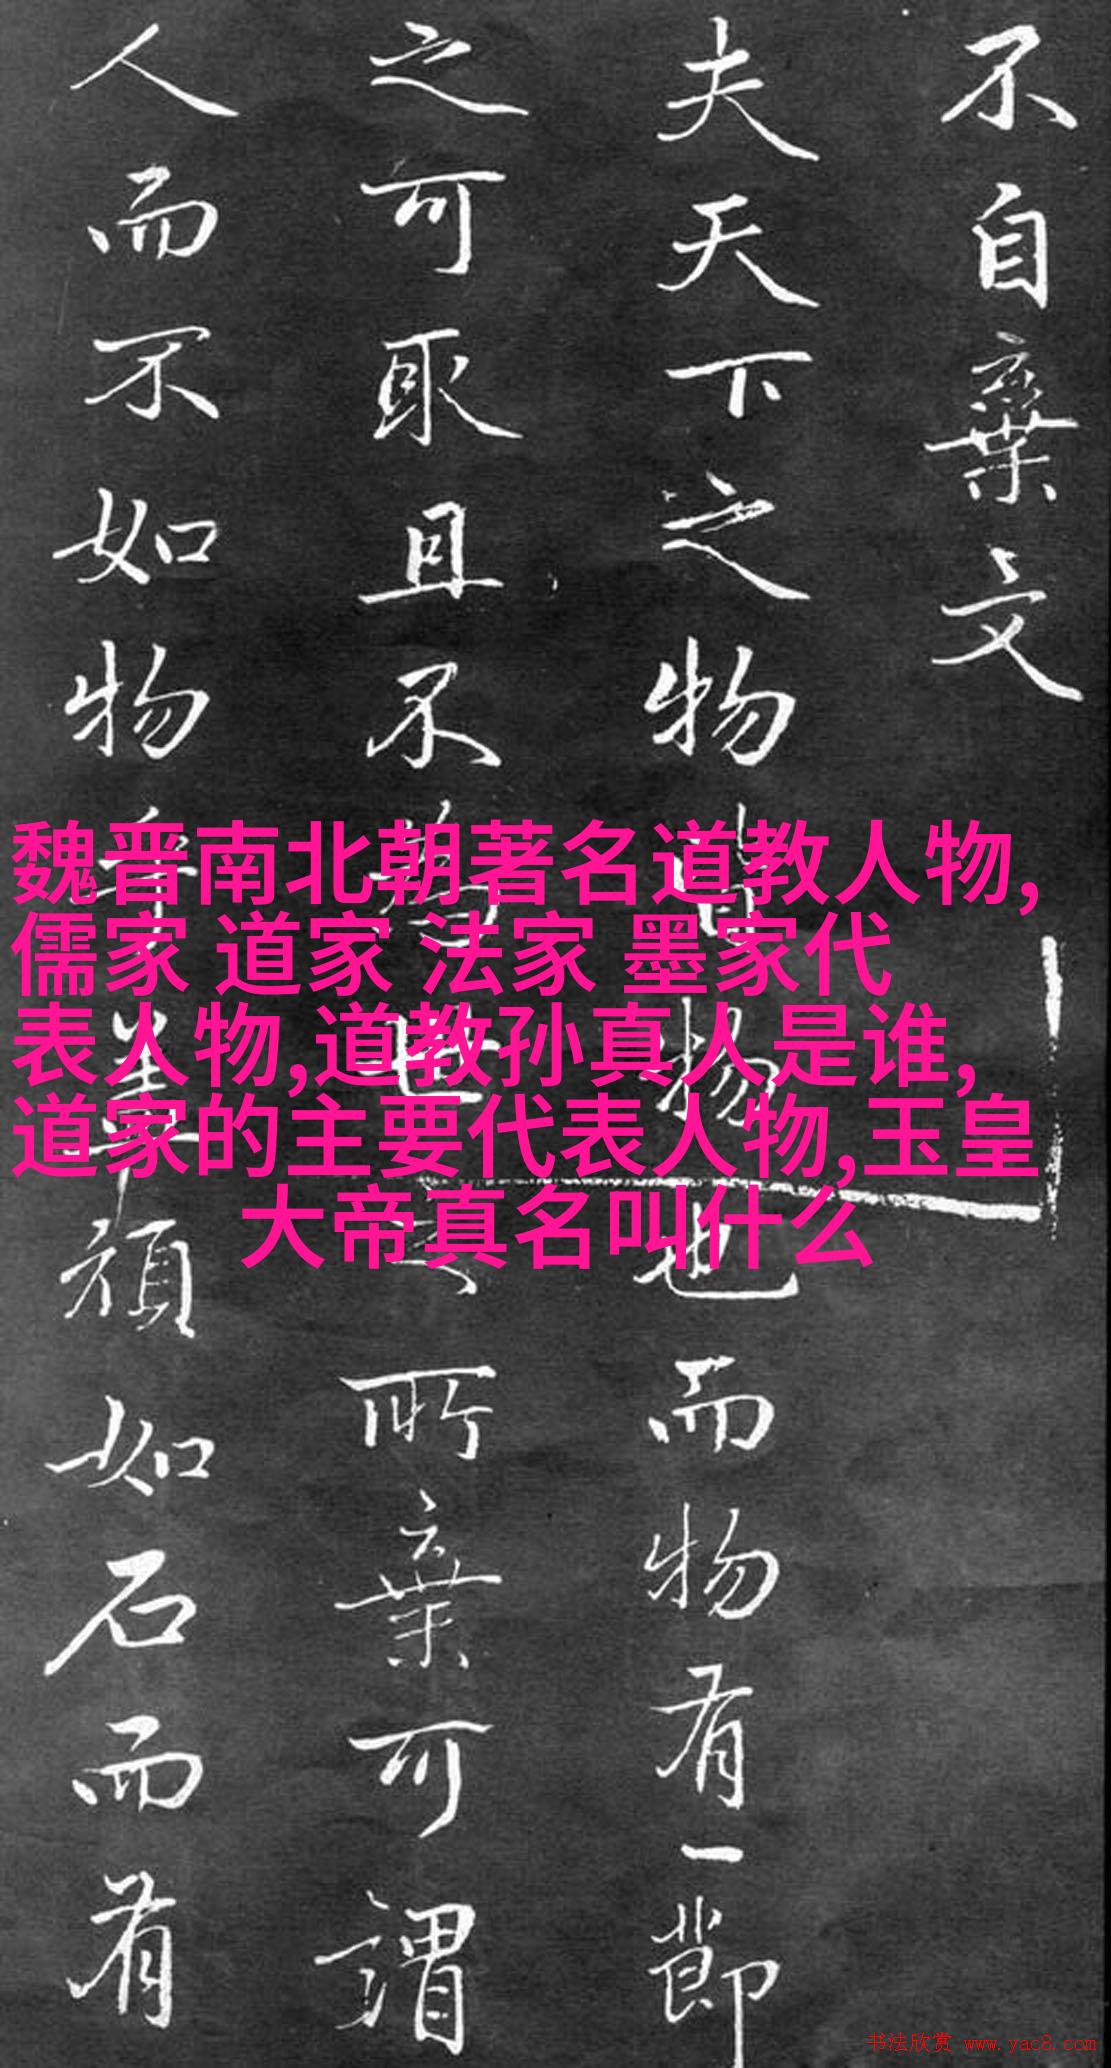 不自棄文
夫天下之物皆物也而物有一節
之可取且不為世之所棄可謂
人而不如物乎蓋頑如石而有
魏晋南北朝著名道教人物,
儒家 道家 法家 墨家代
表人物,道教孙真人是谁,
道家的主要代表人物,玉皇
大帝真名叫什么
书法欣赏 www.yac8.com